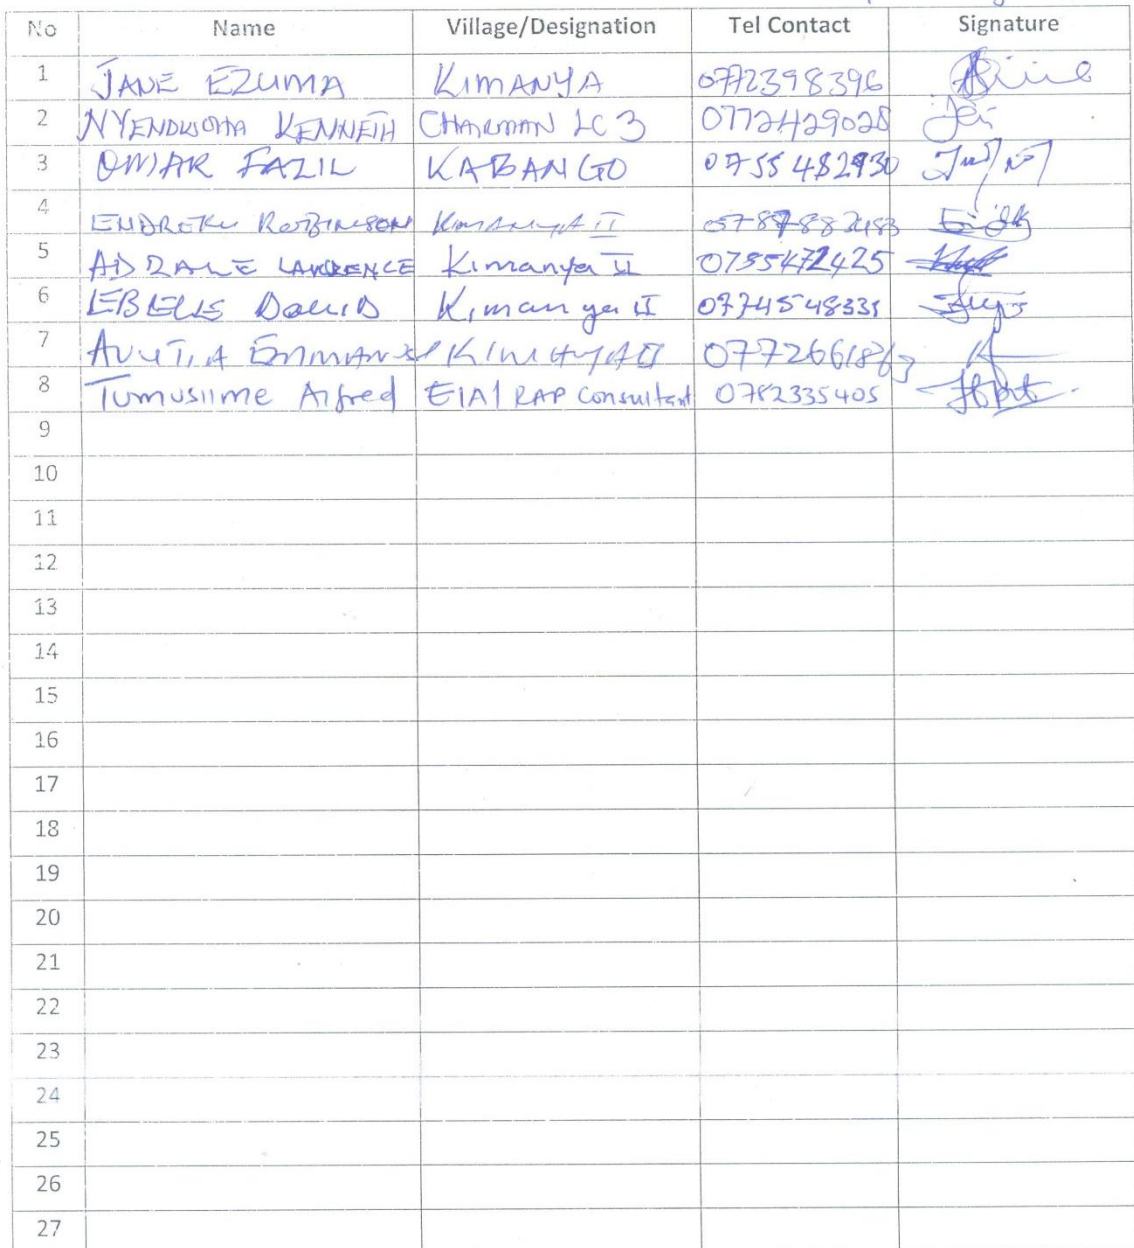 No Name Village/Designation Tel Contact Signature
1 JANE EZUMA KIMANYA 0772398396
2 NYENDWOHA KENNETH CHAIRMAN LC 3 0772429028
3 OMAR FAZIL KABANGO 0755482930
4 ENDREKU ROBINSON KIMANYA II
5 ADRALE LAWRENCE Kimanya II 0755472425
6 David Kimanya II 0774548331
7 KIMANYA II
8 Tumusiime Alfred EIA/RAP Consultant 0782335405
9
10
11
12
13
14
15
16
17
18
19
20
21
22
23
24
25
26
27